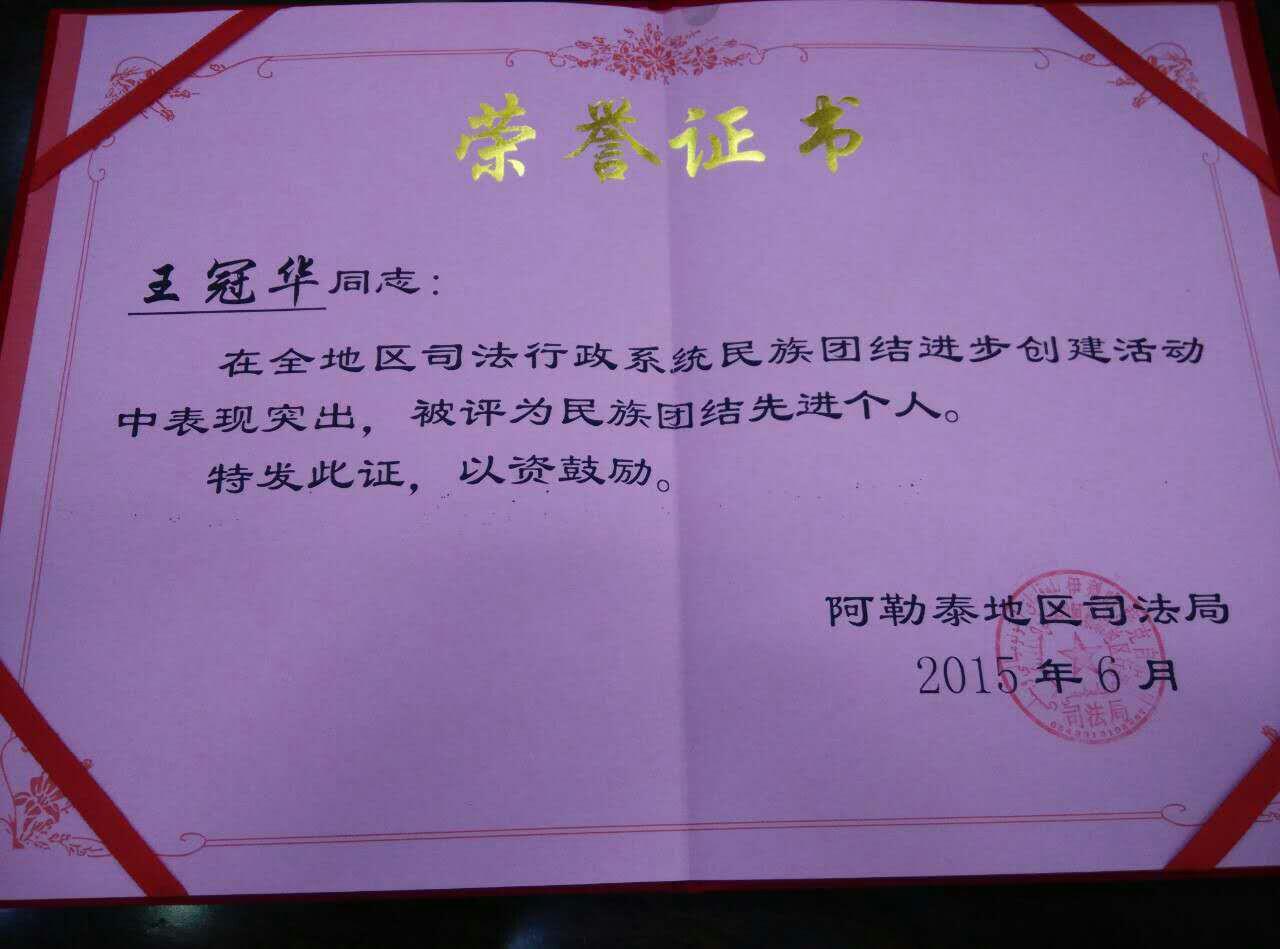 荣誉证书
王冠华同志：
在全地区司法行政系统民族团结进步创建活动
中表现突出，被评为民族团结先进个人。
特发此证，以资鼓励。
阿勒泰地区司法局
2015年6月
司法局